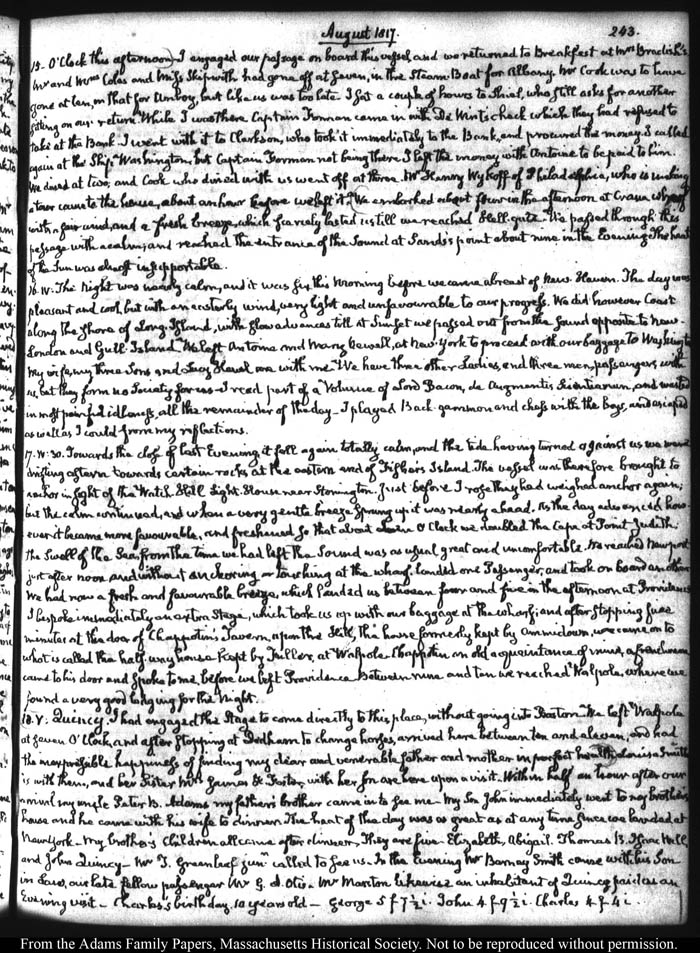 August 1817. 243.
15. O'Clock this afternoon I engaged our passage on board this vessel, and we returned to Breakfast at Mrs Bradish's
Mr and Mrs Coles and Miss Skipwith had gone off at seven, in the Steam Boat for Albany. Mr Cook was to have
gone at ten, on that for Amboy, but like us was too late. I sat a couple of hours to who still asks for another
sitting on our return. While I was there Captain Forman came in with De Wint's check which they had refused to
take at the Bank. I went with it to Clarkson, who took it immediately to the Bank, and procured the money. I called
again at the Ship Washington, but Captain Forman not being there I left the money with Antoine to be paid to him.
We dined at two, and Cook who dined with us went off at three. Mr Henry Wykoff of Philadelphia, who is making
a tour came to the house, about an hour before we left it. We embarked about four in the afternoon at Crane wharf
with a fair wind, and a fresh breeze, which scarcely lasted us till we reached Hell-gate. We passed through this
passage with a calm; and reached the entrance of the Sound at Sands's point about nine in the Evening. The heat
of the Sun was almost insupportable.
16. IV. The Night was nearly calm, and it was six this morning before we came abreast of New Haven. The day was
pleasant and cool, but with an easterly wind, very light and unfavourable to our progress. We did however Coast
along the shore of Long-Island, with slow advances till at Sunset we passed out from the Sound opposite to New-
London and Gull Island. We left Antoine and Mary Newell, at New-York to proceed with our baggage to Washington
My wife, my three Sons and Lucy are with me. We have three other Ladies, and three men, passengers with
us, but they form no Society for us. I read part of a Volume of Lord Bacon, de Augmentis Scientiarum, and wasted
in most painful idleness, all the remainder of the day. I played Back-gammon and chess with the boys, and escaped
as well as I could from my reflections.
17. IV. 30. Towards the close of last Evening it fell again totally calm, and the tide having turned against us we were
drifting astern towards certain rocks at the eastern end of Fisher's Island. The vessel was therefore brought to
anchor in sight of the Watch-Hill Light House near Stonington. Just before I rose they had weighed anchor again;
but the calm continued, and when a very gentle breeze sprung up it was nearly ahead. As the day advanced how-
ever it became more favourable, and freshened so that about O'Clock we doubled the Cape at Point Judith.
The swell of the Sea from the time we had left the Sound was as usual great and uncomfortable. We reached Newport
just after noon and without anchoring or touching at the wharf, landed one Passenger, and took on board another
We had now a fresh and favourable breeze, which landed us between four and five in the afternoon at Providence
I bespoke immediately an extra Stage, which took us up with our baggage at the wharf; and after stopping five
minutes at the door of Chappotin's Tavern, upon the Hill, the house formerly kept by Ammidown, we came on to
what is called the half-way house kept by Fuller, at Walpole. Chappotin an old acquaintance of mine, a Frenchman
came to his door and spoke to me, before we left Providence. Between nine and ten we reached Walpole, where we
found a very good lodging for the Night.
18. V. Quincy. I had engaged the Stage to come directly to this place, without going into Boston. We left Walpole
at seven O'Clock, and after stopping at Dedham to change horses, arrived here between ten and eleven, and had
the inexpressible happiness of finding my dear and venerable father and mother in perfect health. Louisa Smith
is with them, and her Sister Mrs James H. Foster, with her son are here upon a visit. Within half an hour after our
arrival my uncle Peter B. Adams my father's brother came in to see me. My Son John immediately went to my brother's
house and he came with his wife to dinner. The heat of the day was as great as at any time since we landed at
New-York. My brother's children all came after dinner. They are five. Elizabeth, Abigail. Thomas B. Isaac Hull,
and John Quincy. Mr T. Greenleaf junr called to see us. In the Evening Mr Barney Smith came with his Son
in Law, our late fellow passenger Mr G. A. Otis. Mr Marston likewise an inhabitant of Quincy paid us an
Evening visit. Charles's birthday. 10 years old. George 5 f 7½ i. John 4 f 9½ i. Charles 4 f 4 i.
From the Adams Family Papers, Massachusetts Historical Society. Not to be reproduced without permission.